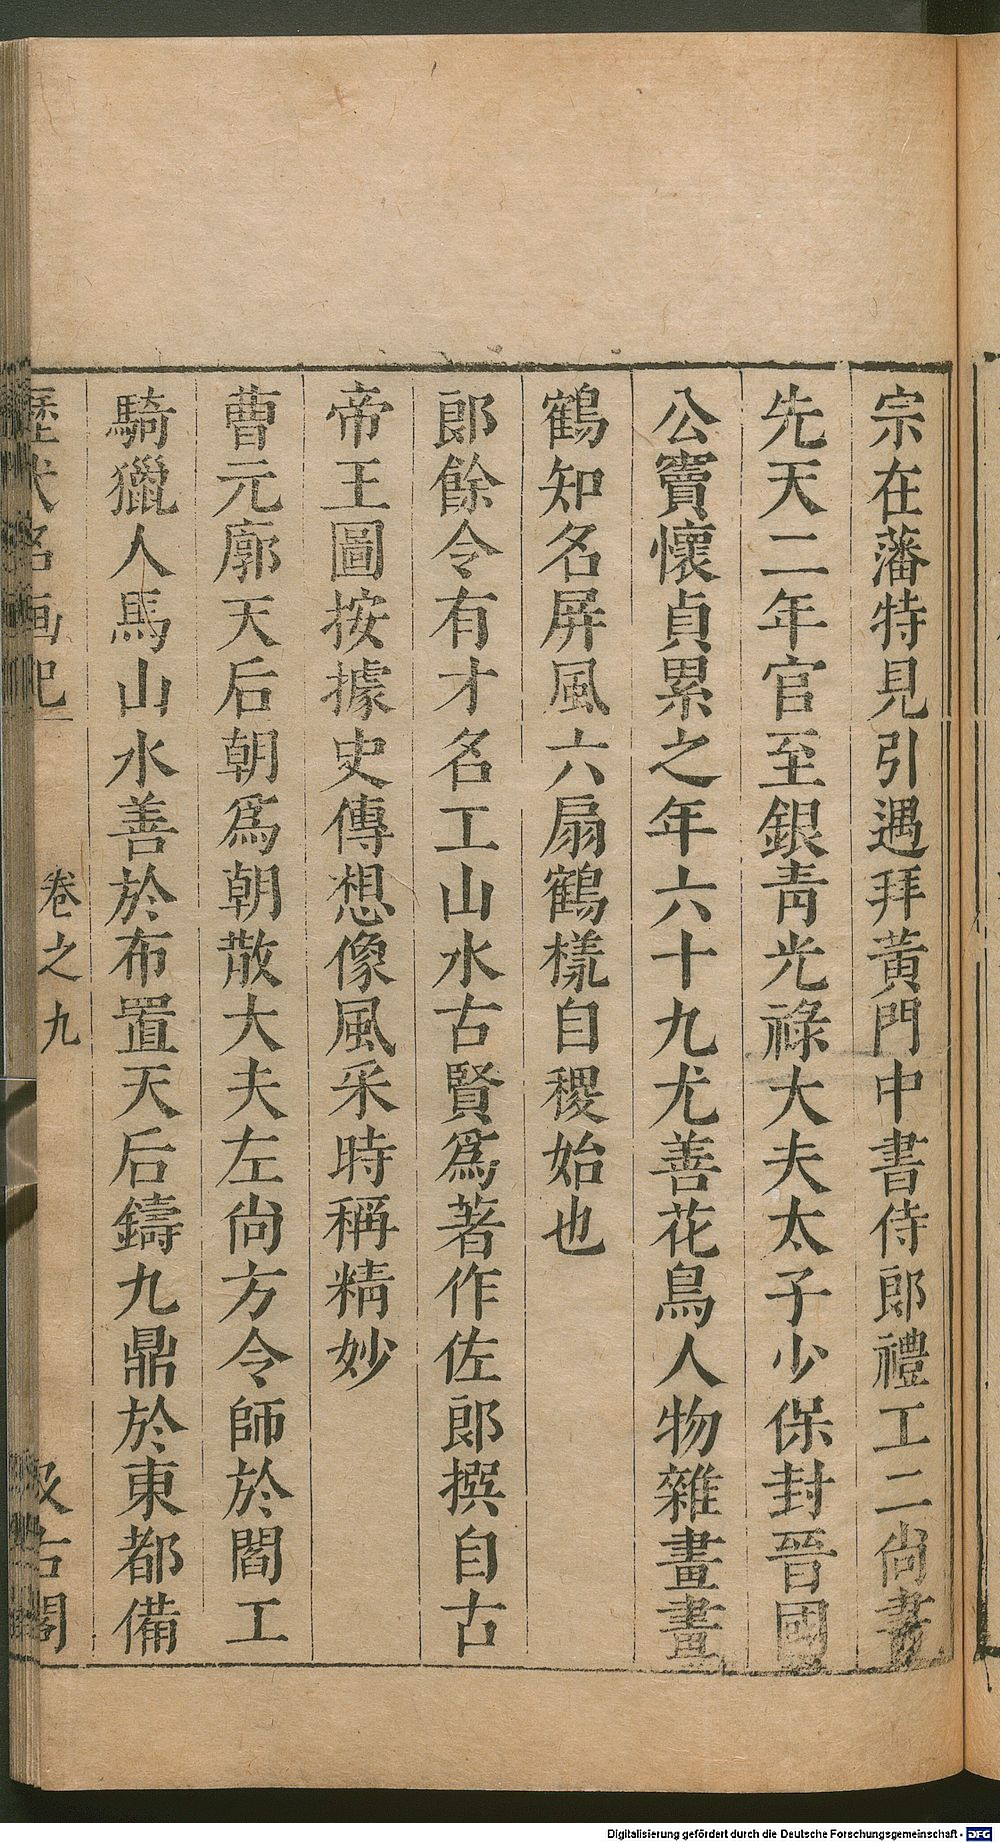 宗在藩特見引遇拜黃門中書侍郎禮工二尚書
先天二年官至銀青光祿大夫太子少保封晉國
公竇懷貞累之年六十九尤善花鳥人物雜畫畫
鶴知名屏風六扇鶴㨾自稷始也
郎餘令有才名工山水古賢爲著作佐郎撰自古
帝王圖按據史傳想像風采時稱精妙
曹元廓天后朝爲朝散大夫左尚方令師於閻工
騎獵人馬山水善於布置天后鑄九鼎於東都備
歷代名画記 卷之九 汲古閣
Digitalisierung gefördert durch die Deutsche Forschungsgemeinschaft - DFG